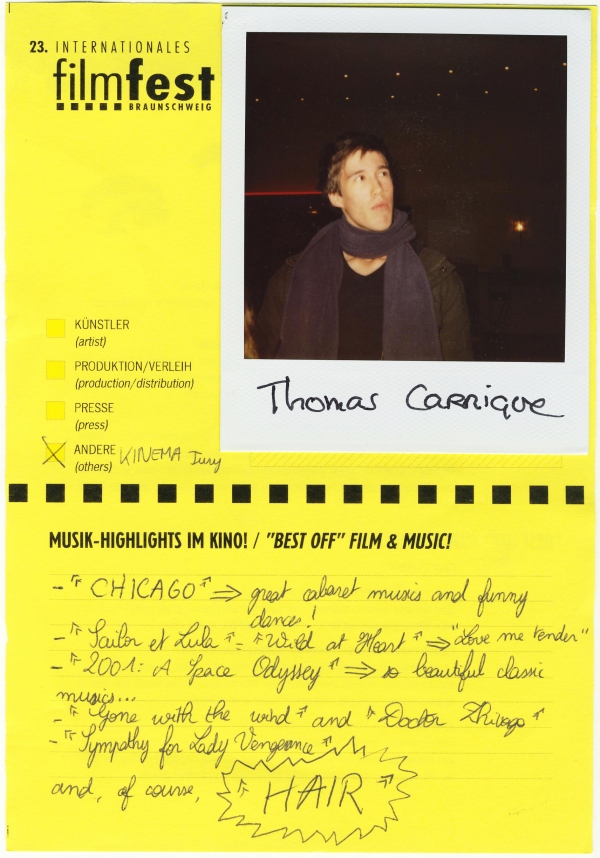 23. INTERNATIONALES
filmfest
BRAUNSCHWEIG
KÜNSTLER
(artist)
PRODUKTION/VERLEIH
(production/distribution)
PRESSE
(press)
ANDERE KINEMA Jury
(others)
Thomas Carrique
MUSIK-HIGHLIGHTS IM KINO! / "BEST OFF" FILM & MUSIC!
- "CHICAGO" ⇒ great cabaret musics and funny
dances!
- "Sailor et Lula" = "Wild at Heart" ⇒ "Love me tender"
- "2001: A Space Odyssey" ⇒ beautiful classic
musics...
- "Gone with the wind" and "Doctor Zhivago"
- "Sympathy for Lady Vengeance"
and, of course, "HAIR"